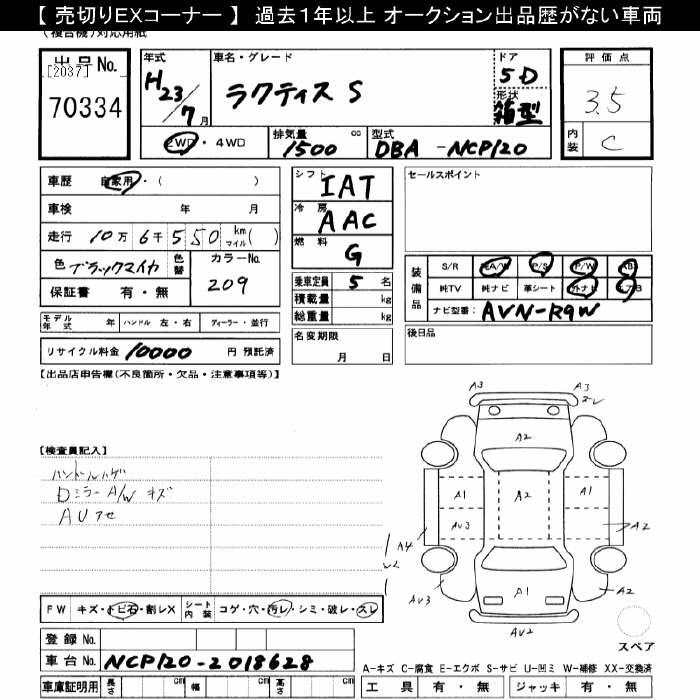 【 売切りEXコーナー 】 過去1年以上 オークション出品歴がない車両
(複合機)対応用紙
出品No.
[2037]
70334
年式
H23/7月
車名・グレード
ラクティス S
ドア
5D
形状
箱型
評価点
3.5
内装
C
2WD・4WD
排気量
1500 cc
型式
DBA-NCP120
車歴 自家用・( )
車検 年 月
走行 10万6千550 km マイル( )
色 ブラックマイカ
色替
カラーNo.
209
保証書 有・無
シフト
IAT
冷房
AAC
燃料
G
乗車定員 5 名
積載量 kg
総重量 kg
セールスポイント
装備品
S/R 純A/W P/S P/W ABS
純TV 純ナビ 革シート 外ナビ エアB
ナビ型番: AVN-R9W
モデル年式 年 ハンドル 左・右 ディーラー・並行
名変期限
月 日
後日品
リサイクル料金 10000 円 預託済
【出品店申告欄(不良箇所・欠品・注意事項等)】
【検査員記入】
ハンドルハゲ
Dミラー A/W キズ
AUアセ
A3
A3
A2
A1
A2
A1
AU3
A2
A4
AU3
A1
A2
AU2
FW キズ・トビ石・割レX シート内装 コゲ・穴・汚レ・シミ・破レ・スレ
スペア
登録No.
車台No. NCP120-2018628
車庫証明用 長さ cm 幅 cm 高さ cm
A-キズ C-腐食 E-エクボ S-サビ U-凹ミ W-補修 XX-交換済
工具 有・無 ジャッキ 有・無